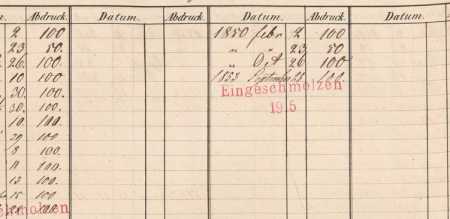 n. Abdruck. Datum. Abdruck. Datum. Abdruck. Datum.
2 100 1850 febr 2 100
23 50. " " 23 50
26. 100. " Oct 26 100
10 100 1853 September 28 100.
30. 100. Eingeschmolzen
30. 100. 19.5
19 100.
29 100
8 100.
11 100.
13 100.
15 100
100.